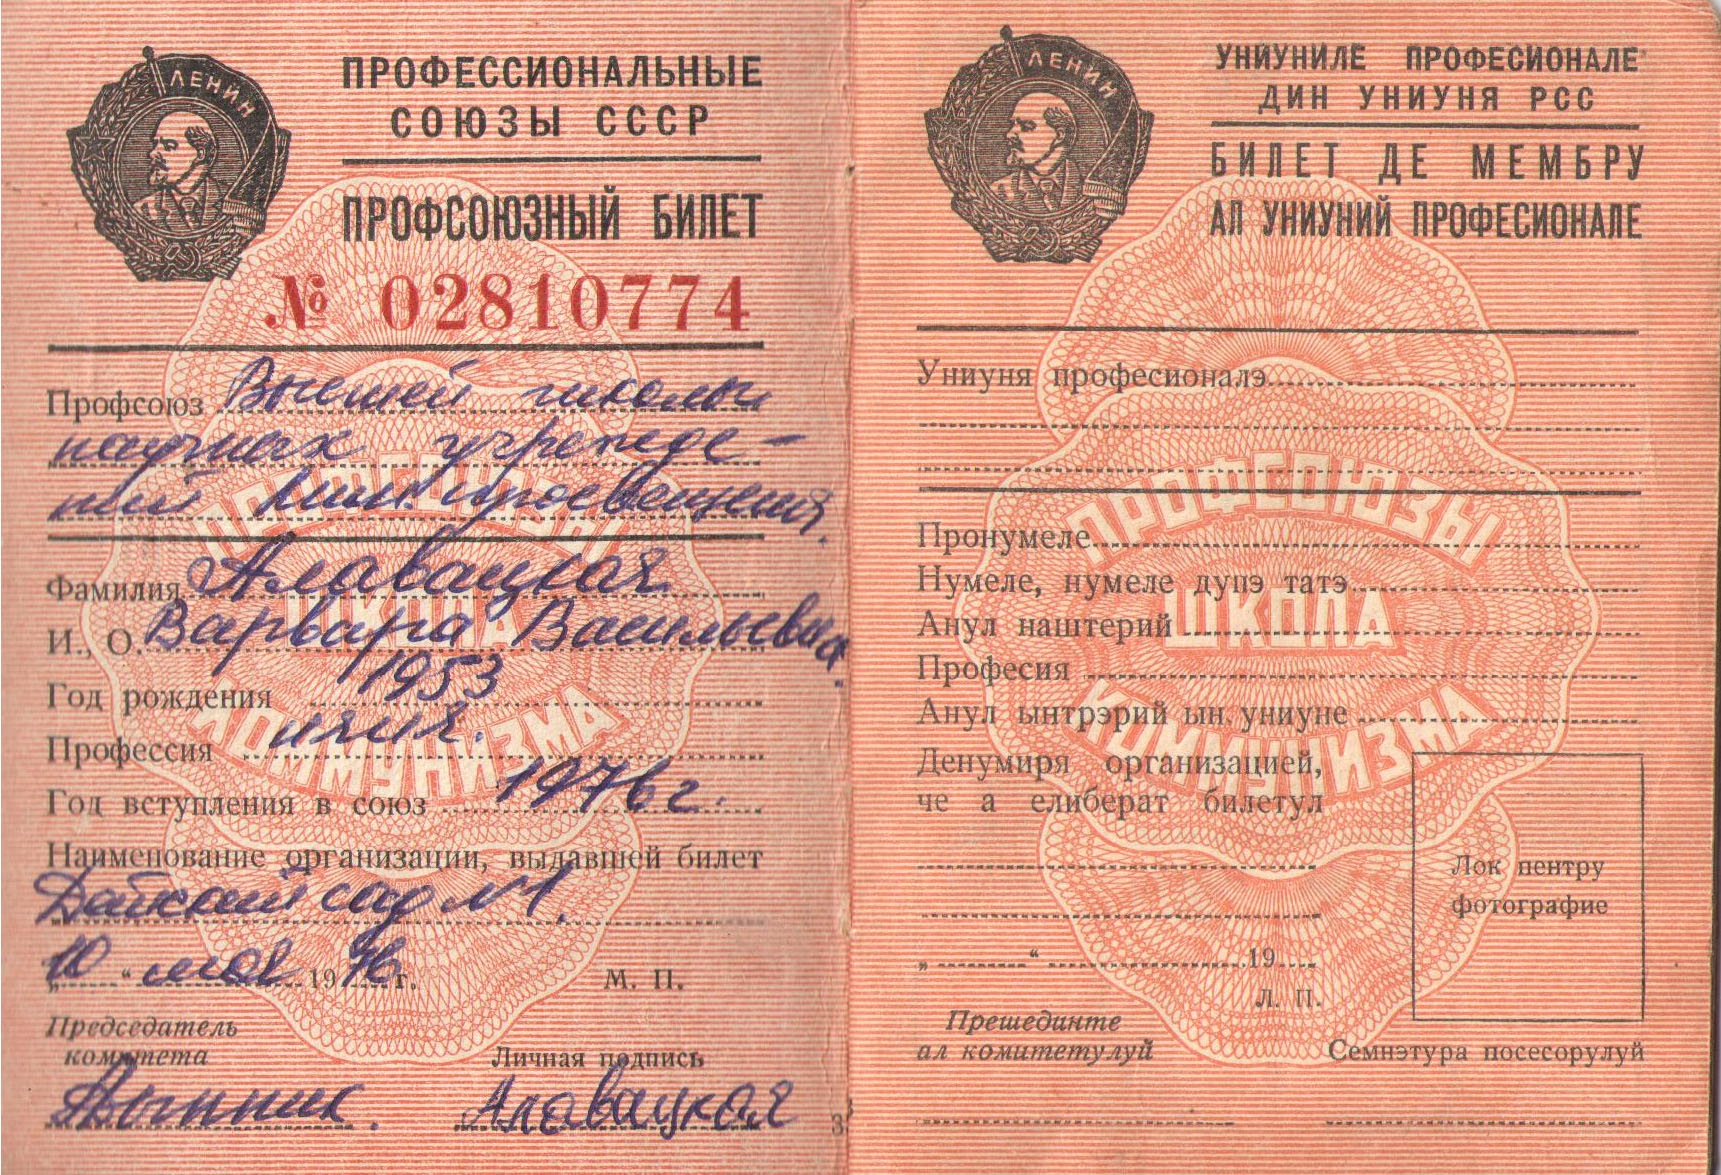 ЛЕНИН
ПРОФЕССИОНАЛЬНЫЕ
СОЮЗЫ СССР
ПРОФСОЮЗНЫЙ БИЛЕТ
№ 02810774
Профсоюз Высшей школы
научных учрежде-
ний Мин. просвещения.
Фамилия Алавацкая
И., О. Варвара Васильевна.
Год рождения 1953
Профессия няня.
Год вступления в союз 1976 г.
Наименование организации, выдавшей билет
Детский сад № 1.
„10“ мая 1976 г. М. П.
Председатель
комитета
Личная подпись
Алавацкая
3
ПРОФСОЮЗЫ
ШКОЛА
КОММУНИЗМА
ЛЕНИН
УНИУНИЛЕ ПРОФЕСИОНАЛЕ
ДИН УНИУНЯ РСС
БИЛЕТ ДЕ МЕМБРУ
АЛ УНИУНИЙ ПРОФЕСИОНАЛЕ
Униуня професионалэ
Пронумеле
Нумеле, нумеле дупэ татэ
Анул наштерий
Професия
Анул ынтрэрий ын униуне
Денумиря организацией,
че а елиберат билетул
Лок пентру
фотографие
„ “ 19
Л. П.
Прешединте
ал комитетулуй
Семнэтура посесорулуй
ПРОФСОЮЗЫ
ШКОЛА
КОММУНИЗМА